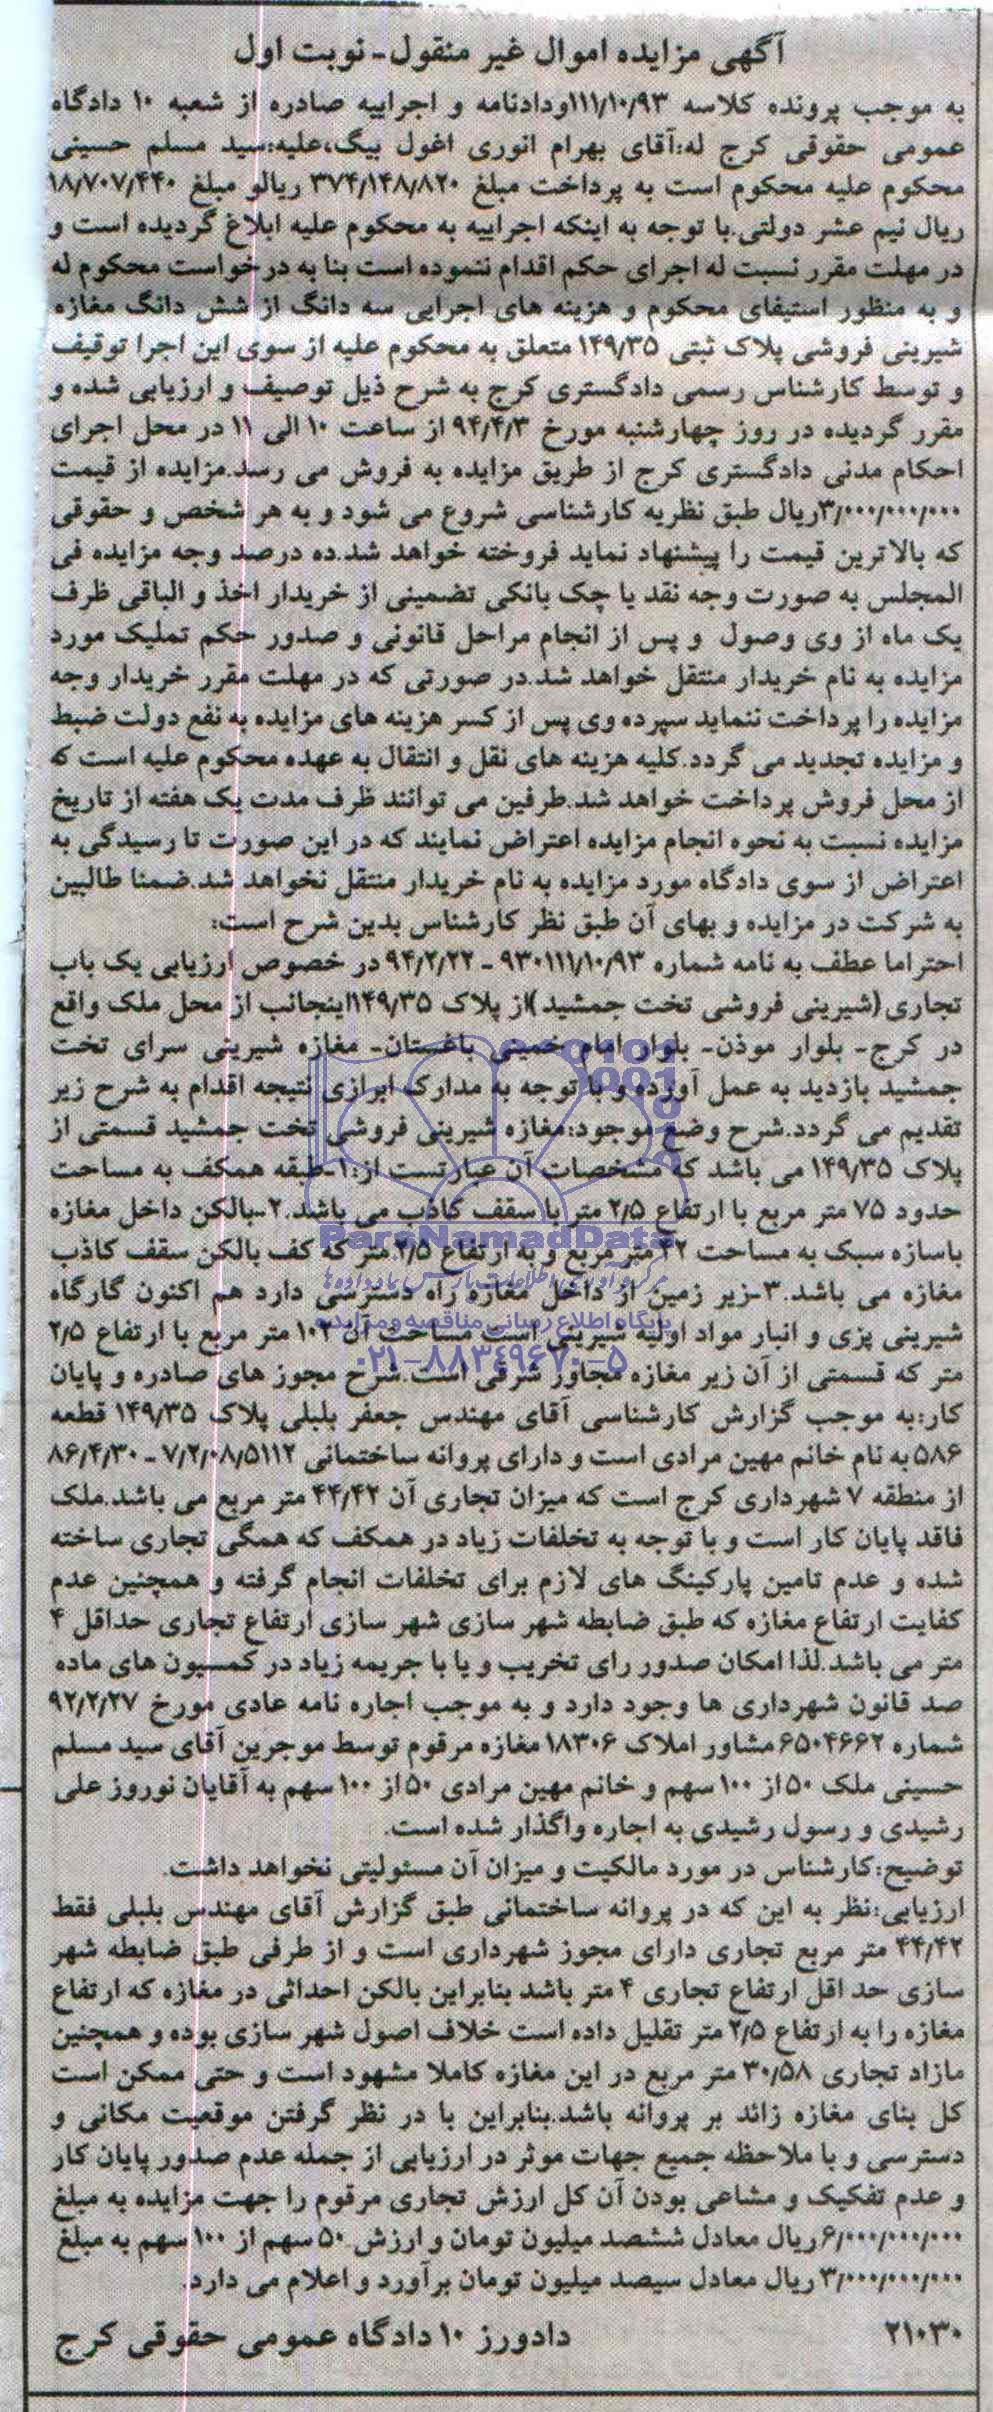 آگهی مزایده اموال غیر منقول- نوبت اول
به موجب پرونده کلاسه ۱۱۱/۱۰/۹۳ودادنامه و اجراییه صادره از شعبه ۱۰ دادگاه
عمومی حقوقی کرج له:آقای بهرام انوری اغول بیگ،علیه:سید مسلم حسینی
محکوم علیه محکوم است به پرداخت مبلغ ۳۷۴/۱۴۸/۸۲۰ ریالو مبلغ ۱۸/۷۰۷/۴۴۰
ریال نیم عشر دولتی.با توجه به اینکه اجراییه به محکوم علیه ابلاغ گردیده است و
در مهلت مقرر نسبت له اجرای حکم اقدام ننموده است بنا به درخواست محکوم له
و به منظور استیفای محکوم و هزینه های اجرایی سه دانگ از شش دانگ مغازه
شیرینی فروشی پلاک ثبتی ۱۴۹/۳۵ متعلق به محکوم علیه از سوی این اجرا توقیف
و توسط کارشناس رسمی دادگستری کرج به شرح ذیل توصیف و ارزیابی شده و
مقرر گردیده در روز چهارشنبه مورخ ۹۴/۴/۳ از ساعت ۱۰ الی ۱۱ در محل اجرای
احکام مدنی دادگستری کرج از طریق مزایده به فروش می رسد.مزایده از قیمت
۳/۰۰۰/۰۰۰/۰۰۰ریال طبق نظریه کارشناسی شروع می شود و به هر شخص و حقوقی
که بالاترین قیمت را پیشنهاد نماید فروخته خواهد شد.ده درصد وجه مزایده فی
المجلس به صورت وجه نقد یا چک بانکی تضمینی از خریدار اخذ و الباقی ظرف
یک ماه از وی وصول و پس از انجام مراحل قانونی و صدور حکم تملیک مورد
مزایده به نام خریدار منتقل خواهد شد.در صورتی که در مهلت مقرر خریدار وجه
مزایده را پرداخت ننماید سپرده وی پس از کسر هزینه های مزایده به نفع دولت ضبط
و مزایده تجدید می گردد.کلیه هزینه های نقل و انتقال به عهده محکوم علیه است که
از محل فروش پرداخت خواهد شد.طرفین می توانند ظرف مدت یک هفته از تاریخ
مزایده نسبت به نحوه انجام مزایده اعتراض نمایند که در این صورت تا رسیدگی به
اعتراض از سوی دادگاه مورد مزایده به نام خریدار منتقل نخواهد شد.ضمنا طالبین
به شرکت در مزایده و بهای آن طبق نظر کارشناس بدین شرح است:
احتراما عطف به نامه شماره ۹۳۰۱۱۱/۱۰/۹۳ - ۹۴/۲/۲۲ در خصوص ارزیابی یک باب
تجاری (شیرینی فروشی تخت جمشید )از پلاک ۱۴۹/۳۵اینجانب از محل ملک واقع
در کرج- بلوار موذن- بلوار امام خمینی باغستان- مغازه شیرینی سرای تخت
جمشید بازدید به عمل آورده و با توجه به مدارک ابرازی نتیجه اقدام به شرح زیر
تقدیم می گردد.شرح وضع موجود:مغازه شیرینی فروشی تخت جمشید قسمتی از
پلاک ۱۴۹/۳۵ می باشد که مشخصات آن عبارتست از:۱-طبقه همکف به مساحت
حدود ۷۵ متر مربع با ارتفاع ۲/۵ متر با سقف کاذب می باشد.۲-بالکن داخل مغازه
باسازه سبک به مساحت ۴۲ متر مربع و به ارتفاع ۲/۵ متر که کف بالکن سقف کاذب
مغازه می باشد.۳-زیر زمین از داخل مغازه راه دسترسی دارد هم اکنون گارگاه
شیرینی پزی و انبار مواد اولیه شیرینی است مساحت آن ۱۰۲ متر مربع با ارتفاع ۲/۵
متر که قسمتی از آن زیر مغازه مجاور شرقی است.شرح مجوز های صادره و پایان
کار:به موجب گزارش کارشناسی آقای مهندس جعفر بلبلی پلاک ۱۴۹/۳۵ قطعه
۵۸۶ به نام خانم مهین مرادی است و دارای پروانه ساختمانی ۷/۲/۰۸/۵۱۱۲ - ۸۶/۴/۳۰
از منطقه ۷ شهرداری کرج است که میزان تجاری آن ۴۴/۴۲ متر مربع می باشد.ملک
فاقد پایان کار است و با توجه به تخلفات زیاد در همکف که همگی تجاری ساخته
شده و عدم تامین پارکینگ های لازم برای تخلفات انجام گرفته و همچنین عدم
کفایت ارتفاع مغازه که طبق ضابطه شهر سازی شهر سازی ارتفاع تجاری حداقل ۴
متر می باشد.لذا امکان صدور رای تخریب و یا با جریمه زیاد در کمسیون های ماده
صد قانون شهرداری ها وجود دارد و به موجب اجاره نامه عادی مورخ ۹۲/۲/۲۷
شماره ۶۵۰۴۶۶۲ مشاور املاک ۱۸۳۰۶ مغازه مرقوم توسط موجرین آقای سید مسلم
حسینی ملک ۵۰ از ۱۰۰ سهم و خانم مهین مرادی ۵۰ از ۱۰۰ سهم به آقایان نوروز علی
رشیدی و رسول رشیدی به اجاره واگذار شده است.
توضیح:کارشناس در مورد مالکیت و میزان آن مسئولیتی نخواهد داشت.
ارزیابی:نظر به این که در پروانه ساختمانی طبق گزارش آقای مهندس بلبلی فقط
۴۴/۴۲ متر مربع تجاری دارای مجوز شهرداری است و از طرفی طبق ضابطه شهر
سازی حد اقل ارتفاع تجاری ۴ متر باشد بنابراین بالکن احداثی در مغازه که ارتفاع
مغازه را به ارتفاع ۲/۵ متر تقلیل داده است خلاف اصول شهر سازی بوده و همچنین
مازاد تجاری ۳۰/۵۸ متر مربع در این مغازه کاملا مشهود است و حتی ممکن است
کل بنای مغازه زائد بر پروانه باشد.بنابراین با در نظر گرفتن موقعیت مکانی و
دسترسی و با ملاحظه جمیع جهات موثر در ارزیابی از جمله عدم صدور پایان کار
و عدم تفکیک و مشاعی بودن آن کل ارزش تجاری مرقوم را جهت مزایده به مبلغ
۶/۰۰۰/۰۰۰/۰۰۰ ریال معادل ششصد میلیون تومان و ارزش ۵۰ سهم از ۱۰۰ سهم به مبلغ
۳/۰۰۰/۰۰۰/۰۰۰ ریال معادل سیصد میلیون تومان برآورد و اعلام می دارد.
۲۱۰۳۰ دادورز ۱۰ دادگاه عمومی حقوقی کرج
ParsNamadData
پایگاه اطلاع رسانی مناقصه و مزایده
۰۲۱-۸۸۳۴۹۶۷۰-۵